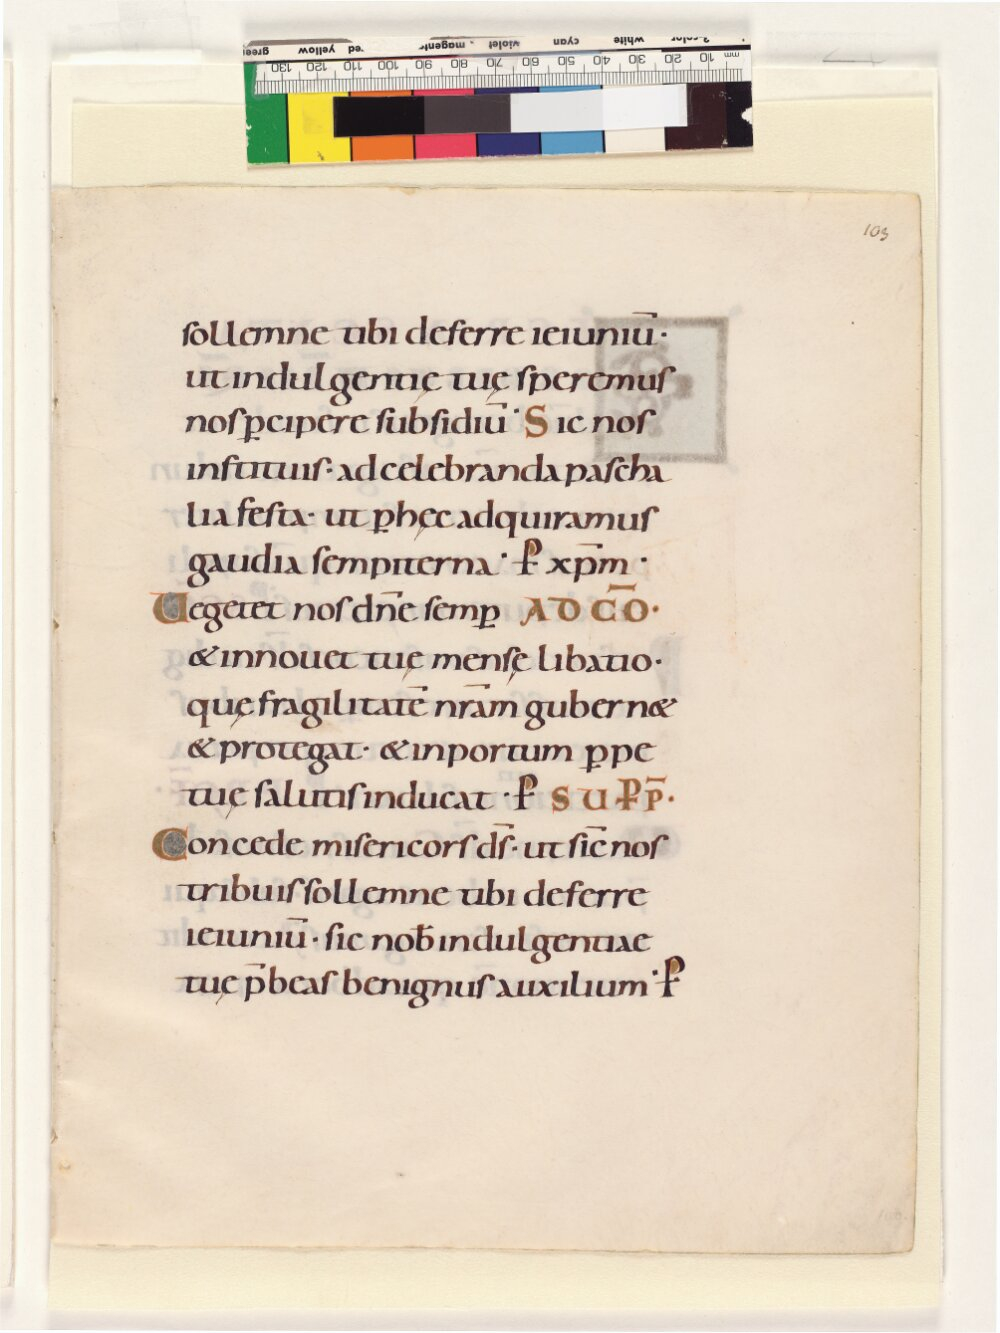 green yellow red magenta violet cyan white 3-color
130 120 110 100 90 80 70 60 50 40 30 20 10 mm
103
sollemne tibi deferre ieiuniū·
ut indulgentię tuę speremus
nos ꝑcipere subsidiū· Sic nos
instituis· ad celebranda pascha
lia festa· ut ꝑ hęc adquiramus
gaudia sempiterna· P xp̄m·
Uegetet nos dn̄e semꝑ AD CŌ·
& innouet tuę mensę libatio·
quę fragilitatē nr̄am gubern&
& protegat· & in portum ꝑpe
tuę salutis inducat· P SUPP̄·
Concede misericors d̄s· ut sic̄ nos
tribuis sollemne tibi deferre
ieiuniū· sic nob̄ indulgentiae
tuę p̄beas benignus auxilium· P